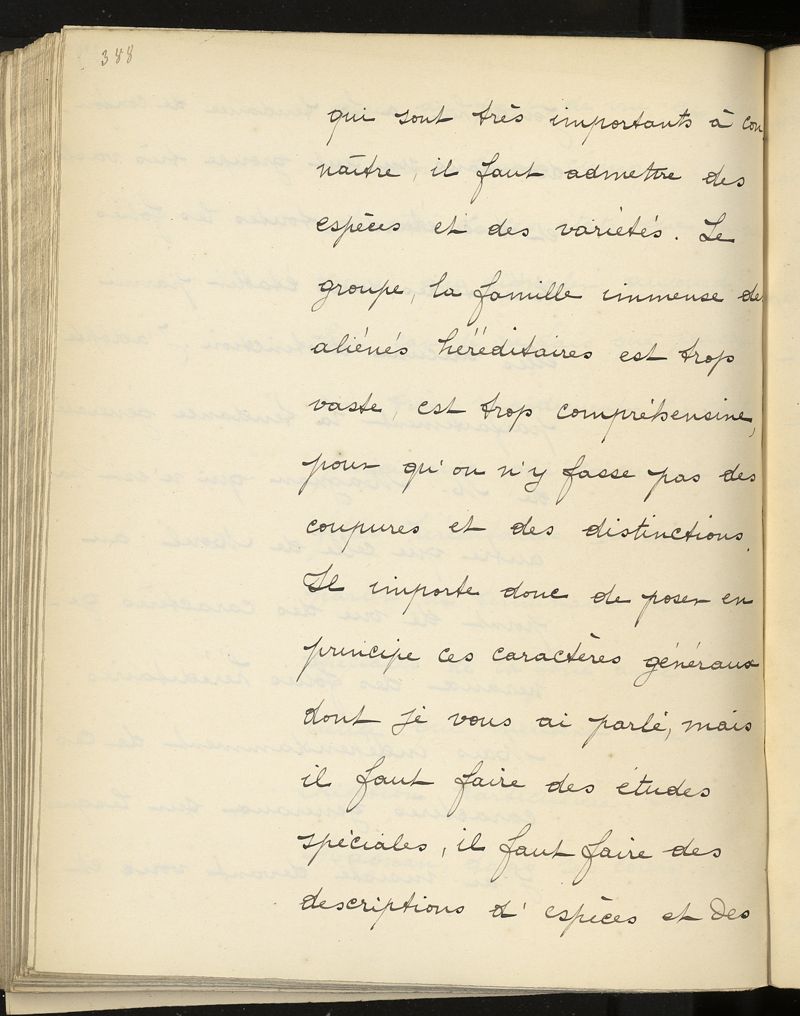 388
qui sont très importants à con
naître, il faut admettre des
espèces et des variétés. Le
groupe, la famille immense des
aliénés héréditaires est trop
vaste, est trop compréhensive,
pour qu'on n'y fasse pas des
coupures et des distinctions.
Il importe donc de poser en
principe ces caractères généraux
dont je vous ai parlé, mais
il faut faire des études
spéciales, il faut faire des
descriptions d'espèces et des